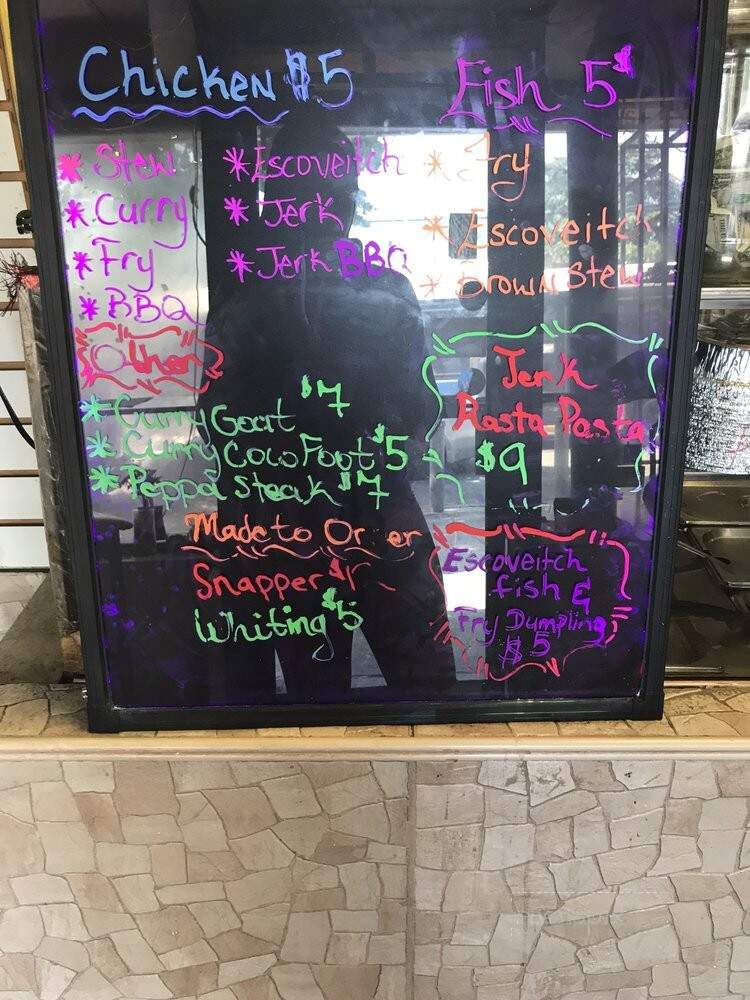 Chicken $5
* Stew
* Curry
* Fry
* BBQ
* Escoveitch
* Jerk
* Jerk BBQ
Fish 5$
* Fry
* Escoveitch
* Brown Stew
Other
* Curry Goat $7
* Curry Coco Foot $5
* Peppa Steak $7
Jerk
Rasta Pasta
$9
Made to Or er
Snapper
Whiting $5
Escoveitch
fish &
Fry Dumpling
$5